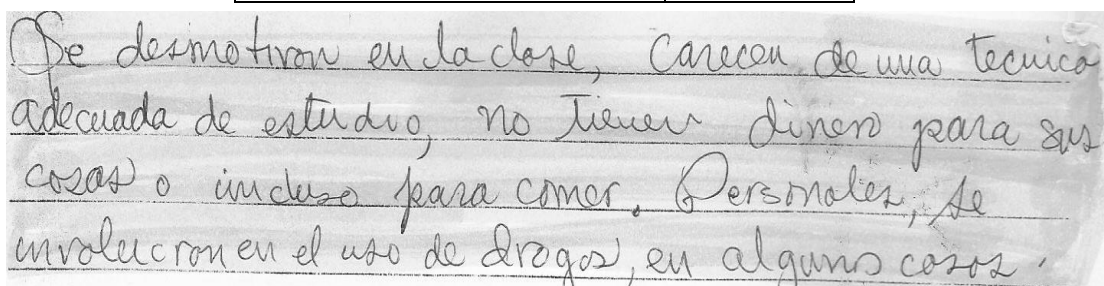 Se desmotivan en la clase, Carecen de una tecnica
adecuada de estudio, no tienen dinero para sus
cosas o incluso para comer. Personales, se
involucran en el uso de drogas, en alguno casos.